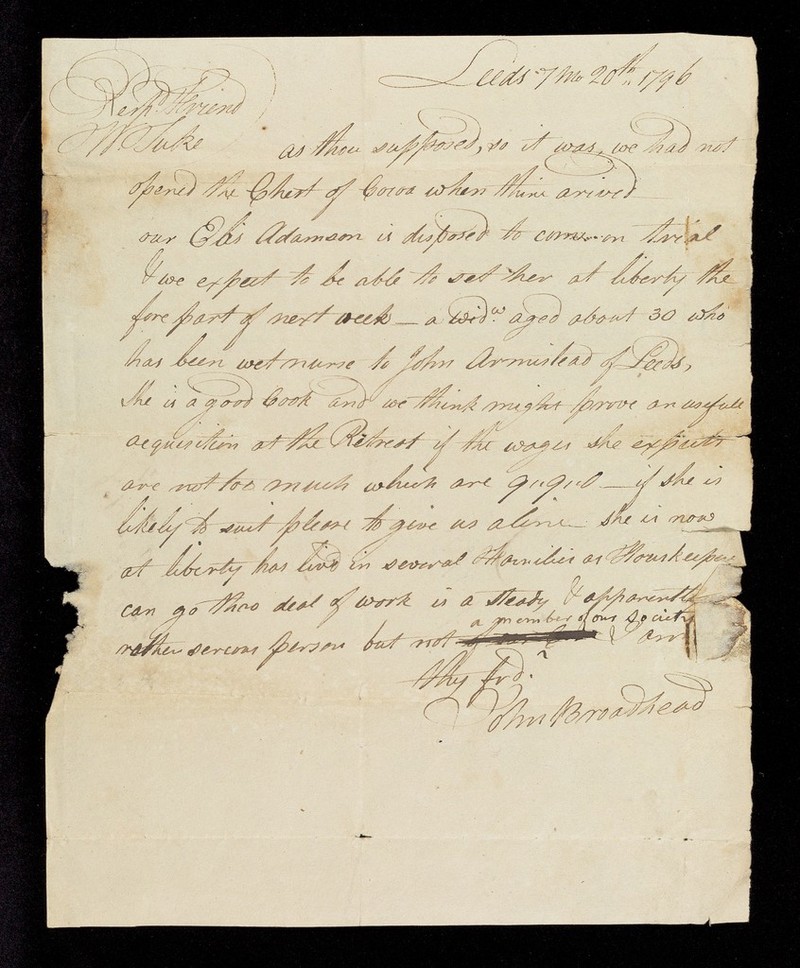 Leeds 7 Mo 20th. 1796
Respd. Friend
Wm. Tuke
as thou supposed, so it was, we had not
opened the Chest of Cocoa when thine arived
our Elis Adamson is disposed to come on trial
& we expect to be able to set her at liberty the
fore part of next week — a widw. aged about 30 who
has been wet nurse to John Armistead of Leeds,
She is a good Cook and we think might prove an usefull
acquisition at the Retreat if the wages she expects
are not too much which are 9"9"0 — if she is
likely to suit please to give us a line she is now
at liberty has livd in several Families as Houskeeper
can go thro deal of work is a steady & apparently
a member of our society
rather serious person but not & am
thy frd.
John Broadhead